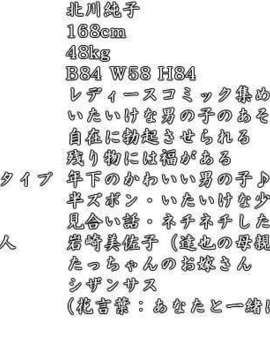 北川純子
168cm
48kg
B84 W58 H84
レディースコミック集め
いたいけな男の子のあそ
自在に勃起させられる
残り物には福がある
タイプ 年下のかわいい男の子♪
半ズボン・いたいけな少
見合い話・ネチネチした
人 岩崎美佐子（達也の母親
たっちゃんのお嫁さん
シザンサス
(花言葉：あなたと一緒に